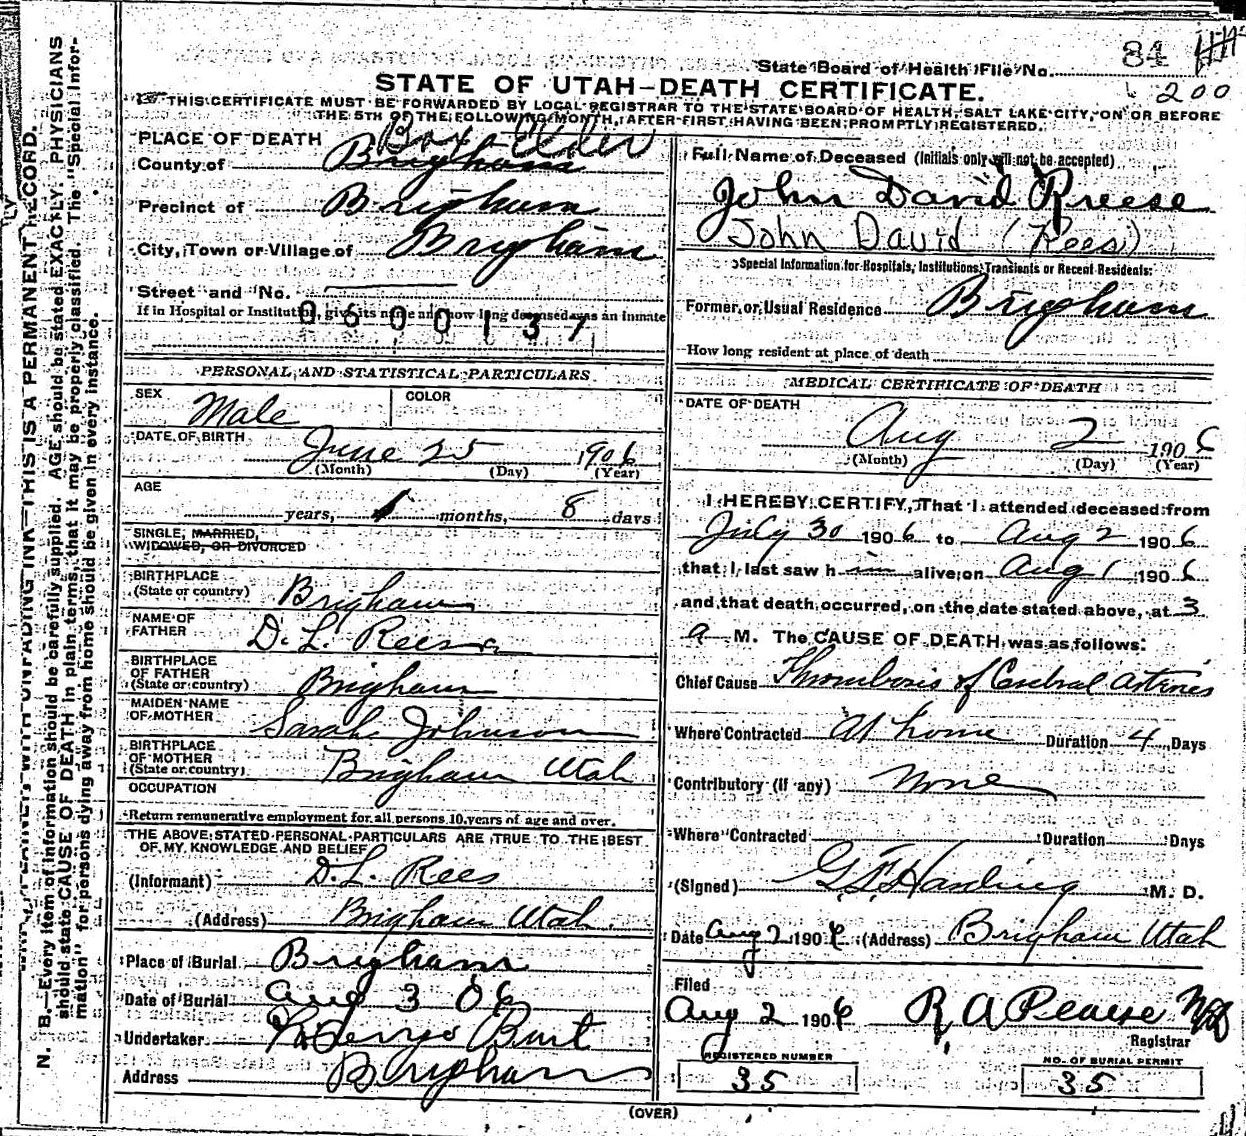 84
State Board of Health File No.
200
STATE OF UTAH—DEATH CERTIFICATE.
THIS CERTIFICATE MUST BE FORWARDED BY LOCAL REGISTRAR TO THE STATE BOARD OF HEALTH, SALT LAKE CITY, ON OR BEFORE
THE 5TH OF THE FOLLOWING MONTH, AFTER FIRST HAVING BEEN PROMPTLY REGISTERED.
PLACE OF DEATH Box Elder
County of Brigham
Precinct of Brigham
City, Town or Village of Brigham
Street and No.
If in Hospital or Institution, give its name and how long deceased was an inmate
0600137
Full Name of Deceased (Initials only will not be accepted)
John David Reese
John David (Rees)
Special Information for Hospitals, Institutions, Transients or Recent Residents:
Former or Usual Residence Brigham
How long resident at place of death
PERSONAL AND STATISTICAL PARTICULARS
SEX Male COLOR
DATE OF BIRTH June 25 1906
(Month) (Day) (Year)
AGE
years, 1 months, 8 days
SINGLE, MARRIED,
WIDOWED, OR DIVORCED
BIRTHPLACE
(State or country) Brigham
NAME OF
FATHER D. L. Reese
BIRTHPLACE
OF FATHER
(State or country) Brigham
MAIDEN NAME
OF MOTHER Sarah Johnson
BIRTHPLACE
OF MOTHER
(State or country) Brigham Utah
OCCUPATION
Return remunerative employment for all persons 10 years of age and over.
THE ABOVE STATED PERSONAL PARTICULARS ARE TRUE TO THE BEST
OF MY KNOWLEDGE AND BELIEF
(Informant) D. L. Rees
(Address) Brigham Utah.
Place of Burial Brigham
Date of Burial Aug 3 06
Undertaker Burt
Address Brigham
MEDICAL CERTIFICATE OF DEATH
DATE OF DEATH
Aug 2 1906
(Month) (Day) (Year)
I HEREBY CERTIFY, That I attended deceased from
July 30 1906 to Aug 2 1906
that I last saw h im alive on Aug 1 1906
and that death occurred, on the date stated above, at 3
a M. The CAUSE OF DEATH was as follows:
Chief Cause Thrombosis of Cerebral arteries
Where Contracted At home Duration 4 Days
Contributory (if any) None
Where Contracted Duration Days
(Signed) G. F. Harding M. D.
Date Aug 2 1906 (Address) Brigham Utah
Filed
Aug 2 1906 R A Pearse MD
Registrar
REGISTERED NUMBER
35
NO. OF BURIAL PERMIT
35
(OVER)
WITH UNFADING INK—THIS IS A PERMANENT RECORD.
N. B.—Every item of information should be carefully supplied. AGE should be stated EXACTLY. PHYSICIANS
should state CAUSE OF DEATH in plain terms, that it may be properly classified. The "Special Infor-
mation" for persons dying away from home should be given in every instance.